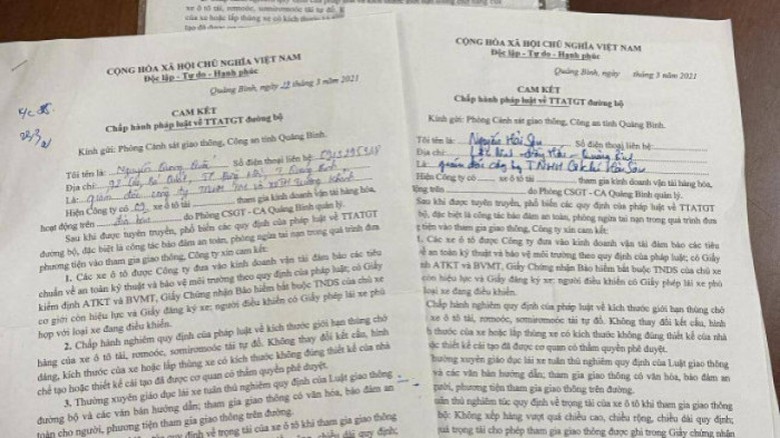 của xe hoặc lắp thùng xe có kích thước không
CỘNG HÒA XÃ HỘI CHỦ NGHĨA VIỆT NAM
Độc lập - Tự do - Hạnh phúc
Quảng Bình, ngày 19 tháng 3 năm 2021
CAM KẾT
Chấp hành pháp luật về TTATGT đường bộ
Kính gửi: Phòng Cảnh sát giao thông, Công an tỉnh Quảng Bình.
Tôi tên là: Nguyễn Quang Số điện thoại liên hệ:
Địa chỉ:
Là: giám đốc công ty TNHH
Hiện Công ty có xe ô tô tải tham gia kinh doanh vận tải hàng hóa,
hoạt động trên do Phòng CSGT - CA Quảng Bình quản lý.
Sau khi được tuyên truyền, phổ biến các quy định của pháp luật về TTATGT
đường bộ, đặc biệt là công tác bảo đảm an toàn, phòng ngừa tai nạn trong quá trình đưa
phương tiện vào tham gia giao thông, Công ty xin cam kết:
1. Các xe ô tô được Công ty đưa vào kinh doanh vận tải đảm bảo các tiêu
chuẩn về an toàn kỹ thuật và bảo vệ môi trường theo quy định của pháp luật; có Giấy
kiểm định ATKT và BVMT, Giấy Chứng nhận Bảo hiểm bắt buộc TNDS của chủ xe
cơ giới còn hiệu lực và Giấy đăng ký xe; người điều khiển có Giấy phép lái xe phù
hợp với loại xe đang điều khiển.
2. Chấp hành nghiêm quy định của pháp luật về kích thước giới hạn thùng chở
hàng của xe ô tô tải, rơmoóc, sơmirơmoóc tải tự đổ. Không thay đổi kết cấu, hình
dáng, kích thước của xe hoặc lắp thùng xe có kích thước không đúng thiết kế của nhà
chế tạo hoặc thiết kế cải tạo đã được cơ quan có thẩm quyền phê duyệt.
3. Thường xuyên giáo dục lái xe tuân thủ nghiêm quy định của Luật giao thông
đường bộ và các văn bản hướng dẫn; tham gia giao thông có văn hóa, bảo đảm an
toàn cho người, phương tiện tham gia giao thông trên đường.
CỘNG HÒA XÃ HỘI CHỦ NGHĨA VIỆT NAM
Độc lập - Tự do - Hạnh phúc
Quảng Bình, ngày tháng 3 năm 2021
CAM KẾT
Chấp hành pháp luật về TTATGT đường bộ
Kính gửi: Phòng Cảnh sát giao thông, Công an tỉnh Quảng Bình.
Tôi tên là: Nguyễn Hải Sơn Số điện thoại liên hệ:
Địa chỉ: Quảng Bình
Là: giám đốc công ty TNHH Cơ khí Hải Sơn
Hiện Công ty có xe ô tô tải tham gia kinh doanh vận tải hàng hóa,
động trên do Phòng CSGT - CA Quảng Bình quản lý.
Sau khi được tuyên truyền, phổ biến các quy định của pháp luật về TTATGT
bộ, đặc biệt là công tác bảo đảm an toàn, phòng ngừa tai nạn trong quá trình đưa
tiện vào tham gia giao thông, Công ty xin cam kết:
1. Các xe ô tô được Công ty đưa vào kinh doanh vận tải đảm bảo các tiêu
về an toàn kỹ thuật và bảo vệ môi trường theo quy định của pháp luật; có Giấy
định ATKT và BVMT, Giấy Chứng nhận Bảo hiểm bắt buộc TNDS của chủ xe
còn hiệu lực và Giấy đăng ký xe; người điều khiển có Giấy phép lái xe phù
loại xe đang điều khiển.
Chấp hành nghiêm quy định của pháp luật về kích thước giới hạn thùng chở
xe ô tô tải, rơmoóc, sơmirơmoóc tải tự đổ. Không thay đổi kết cấu, hình
thước của xe hoặc lắp thùng xe có kích thước không đúng thiết kế của nhà
hoặc thiết kế cải tạo đã được cơ quan có thẩm quyền phê duyệt.
Thường xuyên giáo dục lái xe tuân thủ nghiêm quy định của Luật giao thông
và các văn bản hướng dẫn; tham gia giao thông có văn hóa, bảo đảm an
người, phương tiện tham gia giao thông trên đường.
thủ nghiêm túc quy định về tải trọng của xe ô tô khi tham gia giao thông
bộ: Không xếp hàng vượt quá chiều cao, chiều rộng, chiều dài quy định;
quá trọng tải cho phép tham gia giao thông được ghi trong Giấy chứng nhận